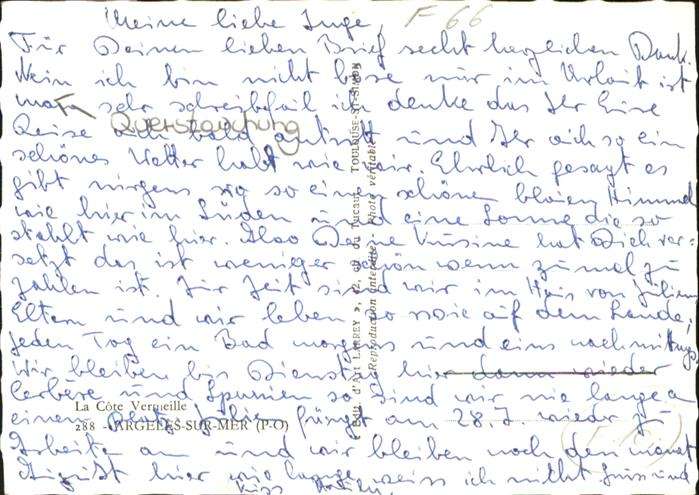 Meine liebe Inge,
F 66
Für Deinen lieben Brief recht herzlichen Dank.
Nein ich bin nicht böse nur im Urlaub ist
man sehr schreibfaul ich denke das Ihr Eure
Querstauchung
Reise auch bald antritt und Ihr auch so ein
schönes Wetter habt wie wir. Ehrlich gesagt es
gibt nirgens so einen schönen blauen Himmel
wie hier im Süden und eine Sonne die so
strahlt wie hier. Also Deine Cusine hat Dich ver=
setzt das ist weniger schön wenn zumal zu
zahlen ist. Zur Zeit sind wir im Haus von Julien
Eltern und wir leben so wie auf dem Lande,
jeden Tag ein Bad morgens und eins nachmittags
Wir bleiben bis Dienstag hier dann wieder
Cerbère und Spanien so sind wir nie lange an
einem Ort. Julien fängt am 28.7. wieder zu
Arbeiten an und wir bleiben noch den Monat
August hier wie lange weiss ich nicht Gruss und
Kuss
La Côte Vermeille
288 - ARGELÈS-SUR-MER (P-O)
« Edit. d'Art LARREY », TOULOUSE-ST-SIMON
Reproduction interdite - Photo véritable